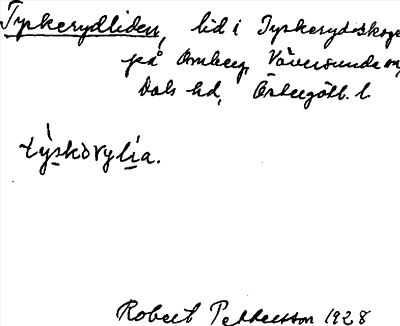 Tyskerydliden, lid i Tyskerydsskogen
på Omberg, Väversunda sn,
Dals hd, Östergötl. l.
týskörylìa.
Robert Pettersson 1928